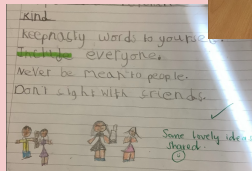 Kind
Keep nasty words to yourself
Include everyone.
Never be mean to people.
Dont fight with friends.
Some lovely ideas
shared.